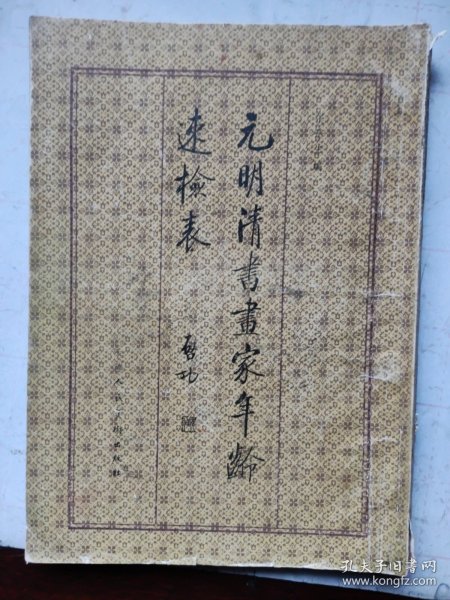 元明清書畫家年齡
速檢表
啓功
人民美術出版社
孔夫子旧书网
www.kongfz.com